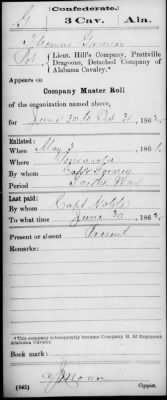 (Confederate.)
G 3 Cav. Ala.
Pvt, Lieut. Hill's Company, Prattville
Dragoons, Detached Company of
Alabama Cavalry.*
Appears on
Company Muster Roll
of the organization named above,
for June 30 to Oct 31, 1862.
Enlisted:
When May 3, 1861.
Where Pensacola
By whom
Period For the War
Last paid:
By whom Capt Noble
To what time June 30, 1862.
Present or absent Present
Remarks:
*This company subsequently became Company H, 3d Regiment
Alabama Cavalry.
Book mark:
(642) Copyist.